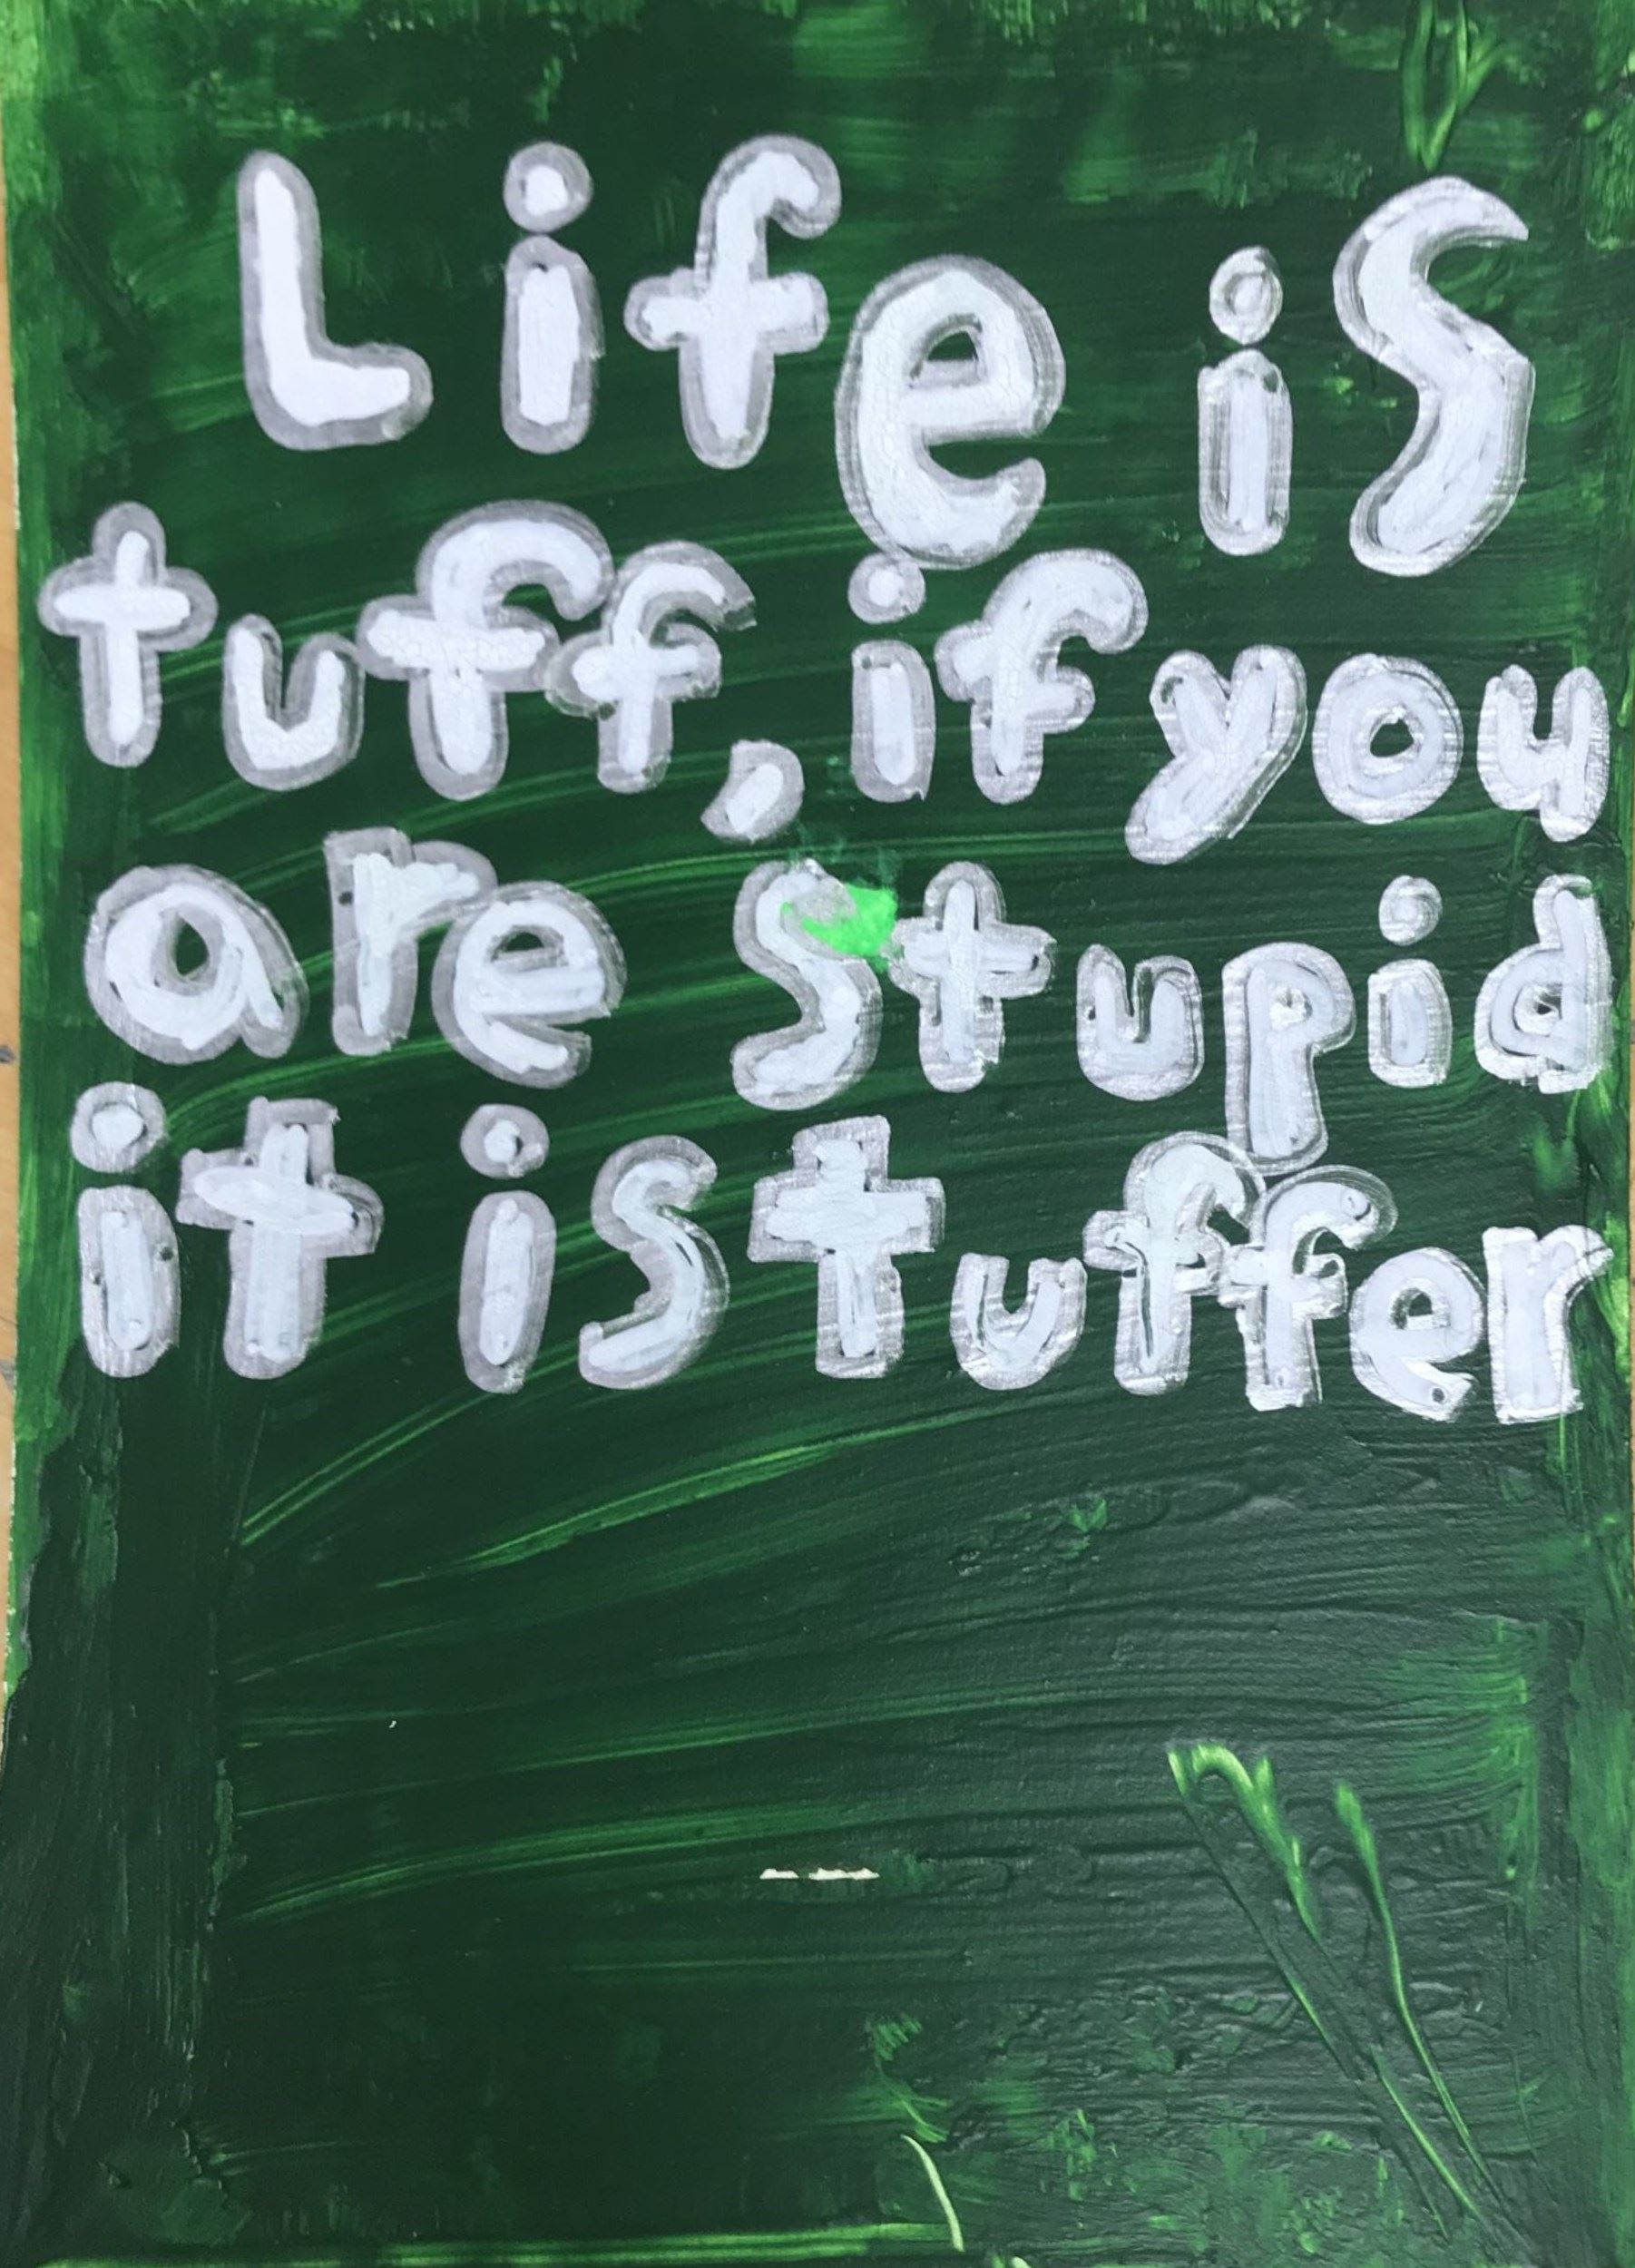 Life is
tuff, if you
are stupid
it is tuffer